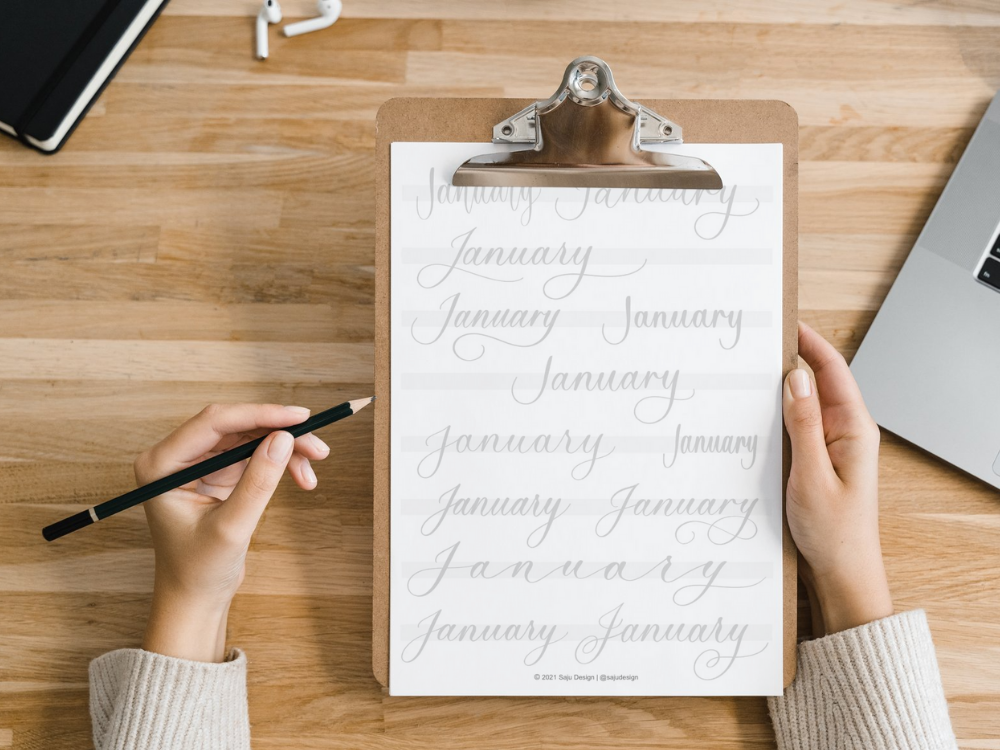 January January
January
January January
January
January January
January January
January
January January
© 2021 Saju Design | @sajudesign